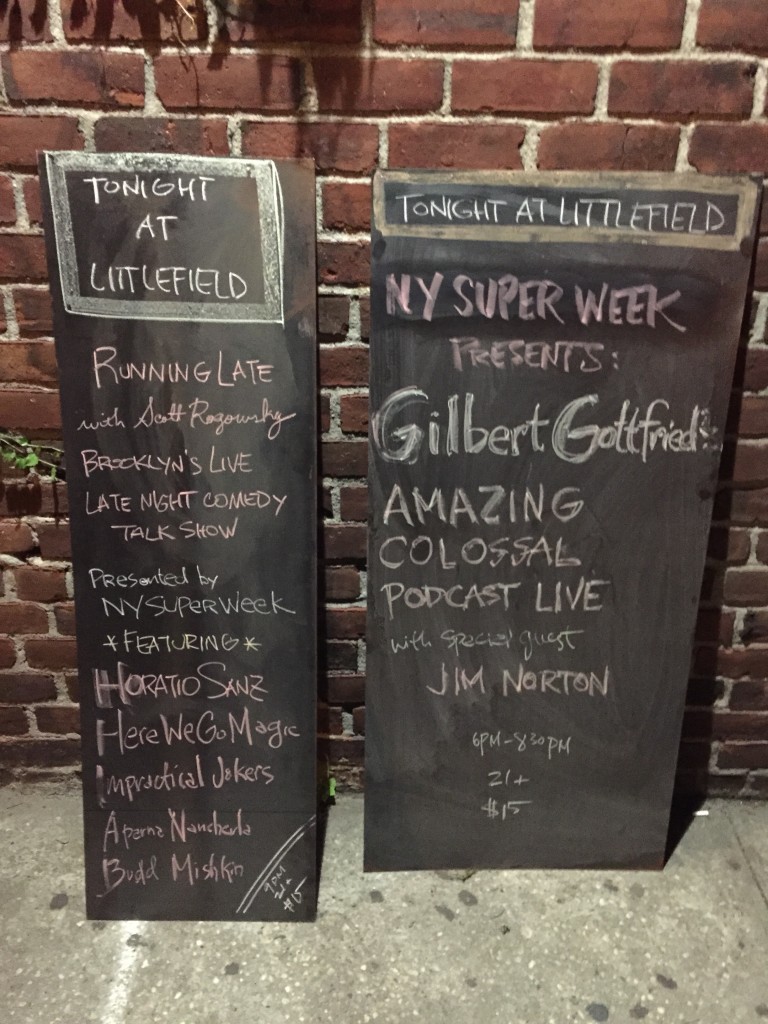 TONIGHT
AT
LITTLEFIELD
RUNNING LATE
with Scott Rogowsky
BROOKLYN'S LIVE
LATE NIGHT COMEDY
TALK SHOW
Presented by
NY SUPER WEEK
*FEATURING*
HORATIO SANZ
Here We Go Magic
Impractical Jokers
Aparna Nancherla
Budd Mishkin
9PM
21+
$15
TONIGHT AT LITTLEFIELD
NY SUPER WEEK
PRESENTS:
Gilbert Gottfried's
AMAZING
COLOSSAL
PODCAST LIVE
with special guest
JIM NORTON
6PM-830PM
21+
$15